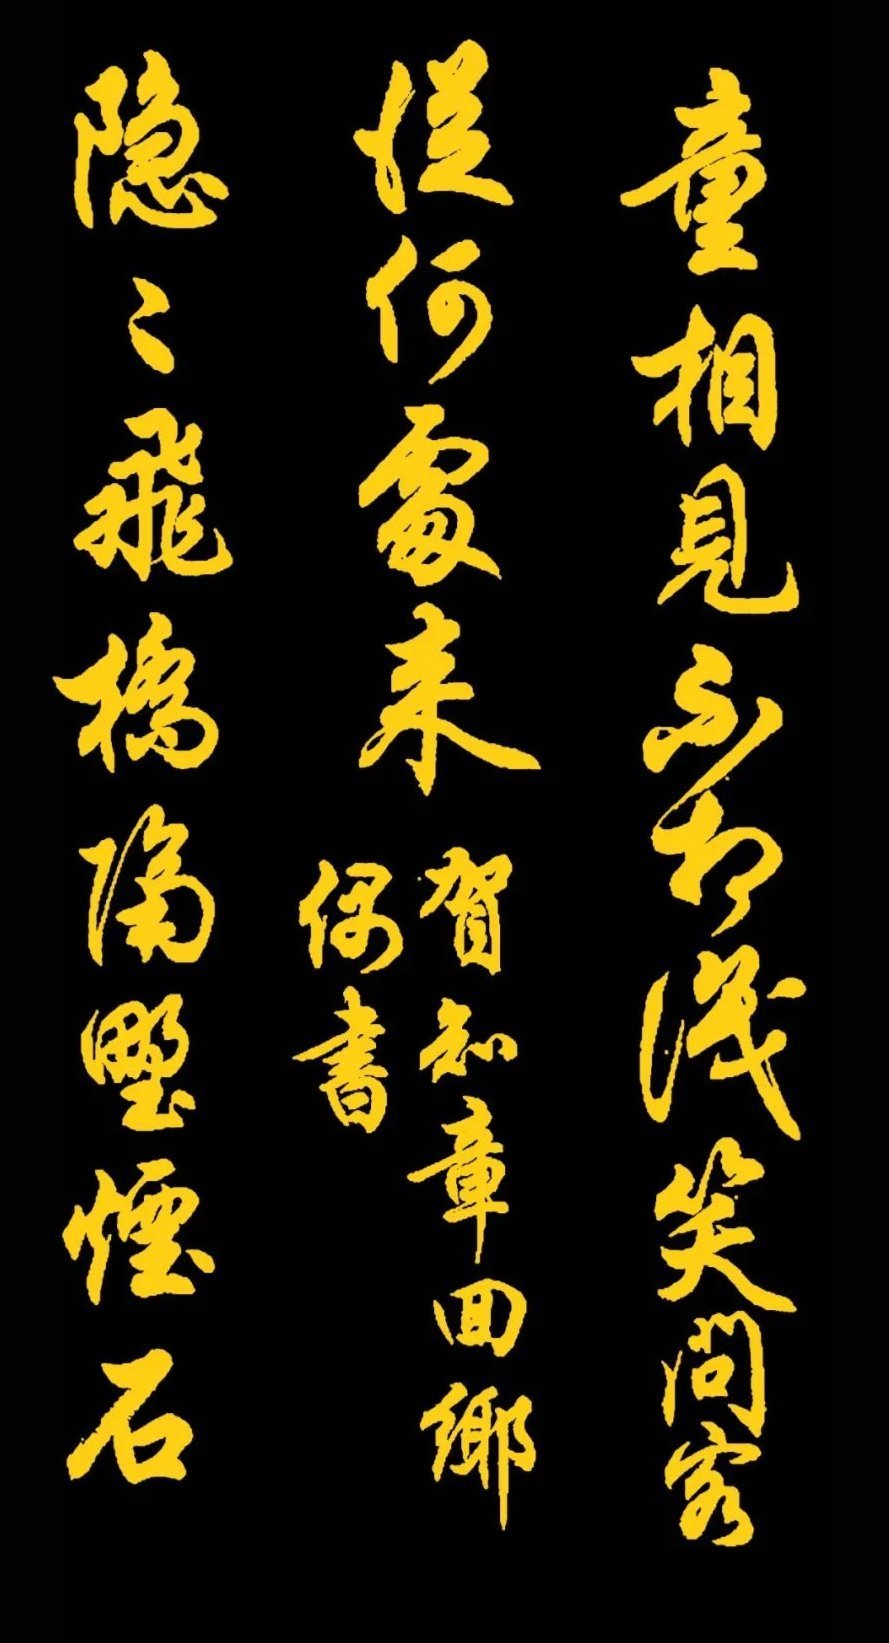 童相見不相識笑問客
從何處来
賀知章回鄉
偶書
隐〻飛橋隔野煙石